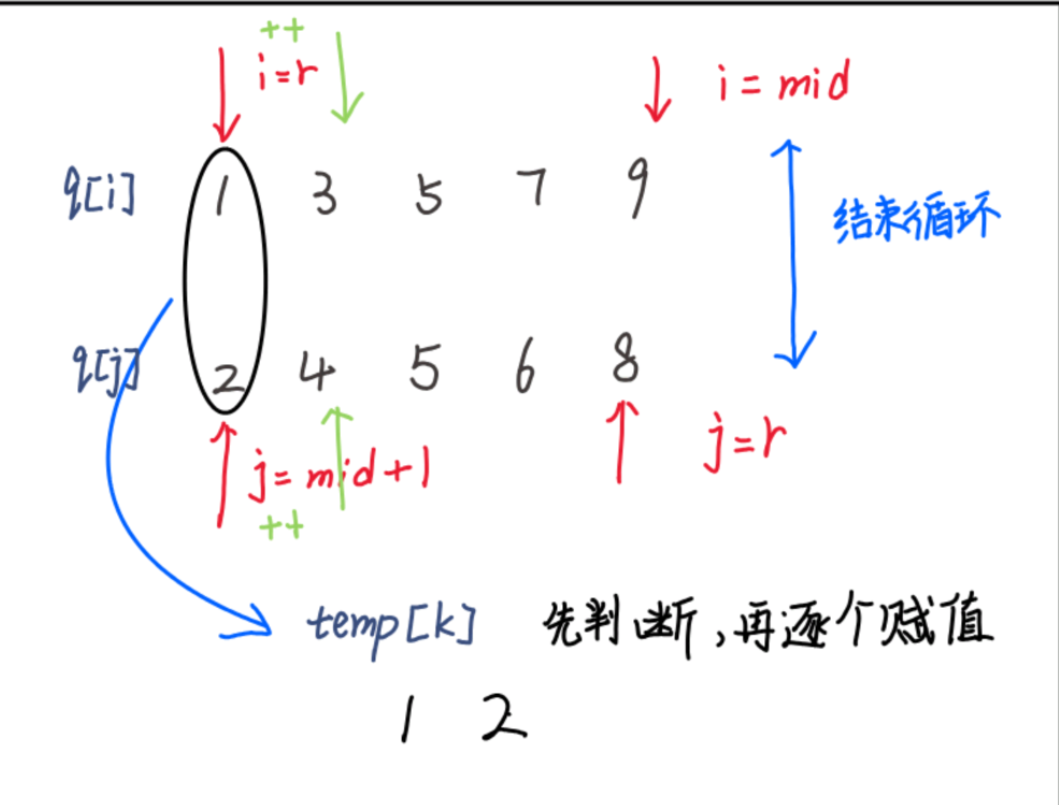 ++
i=r
i = mid
q[i] 1 3 5 7 9
结束循环
q[j] 2 4 5 6 8
j=mid+1
j=r
++
temp[k] 先判断,再逐个赋值
1 2